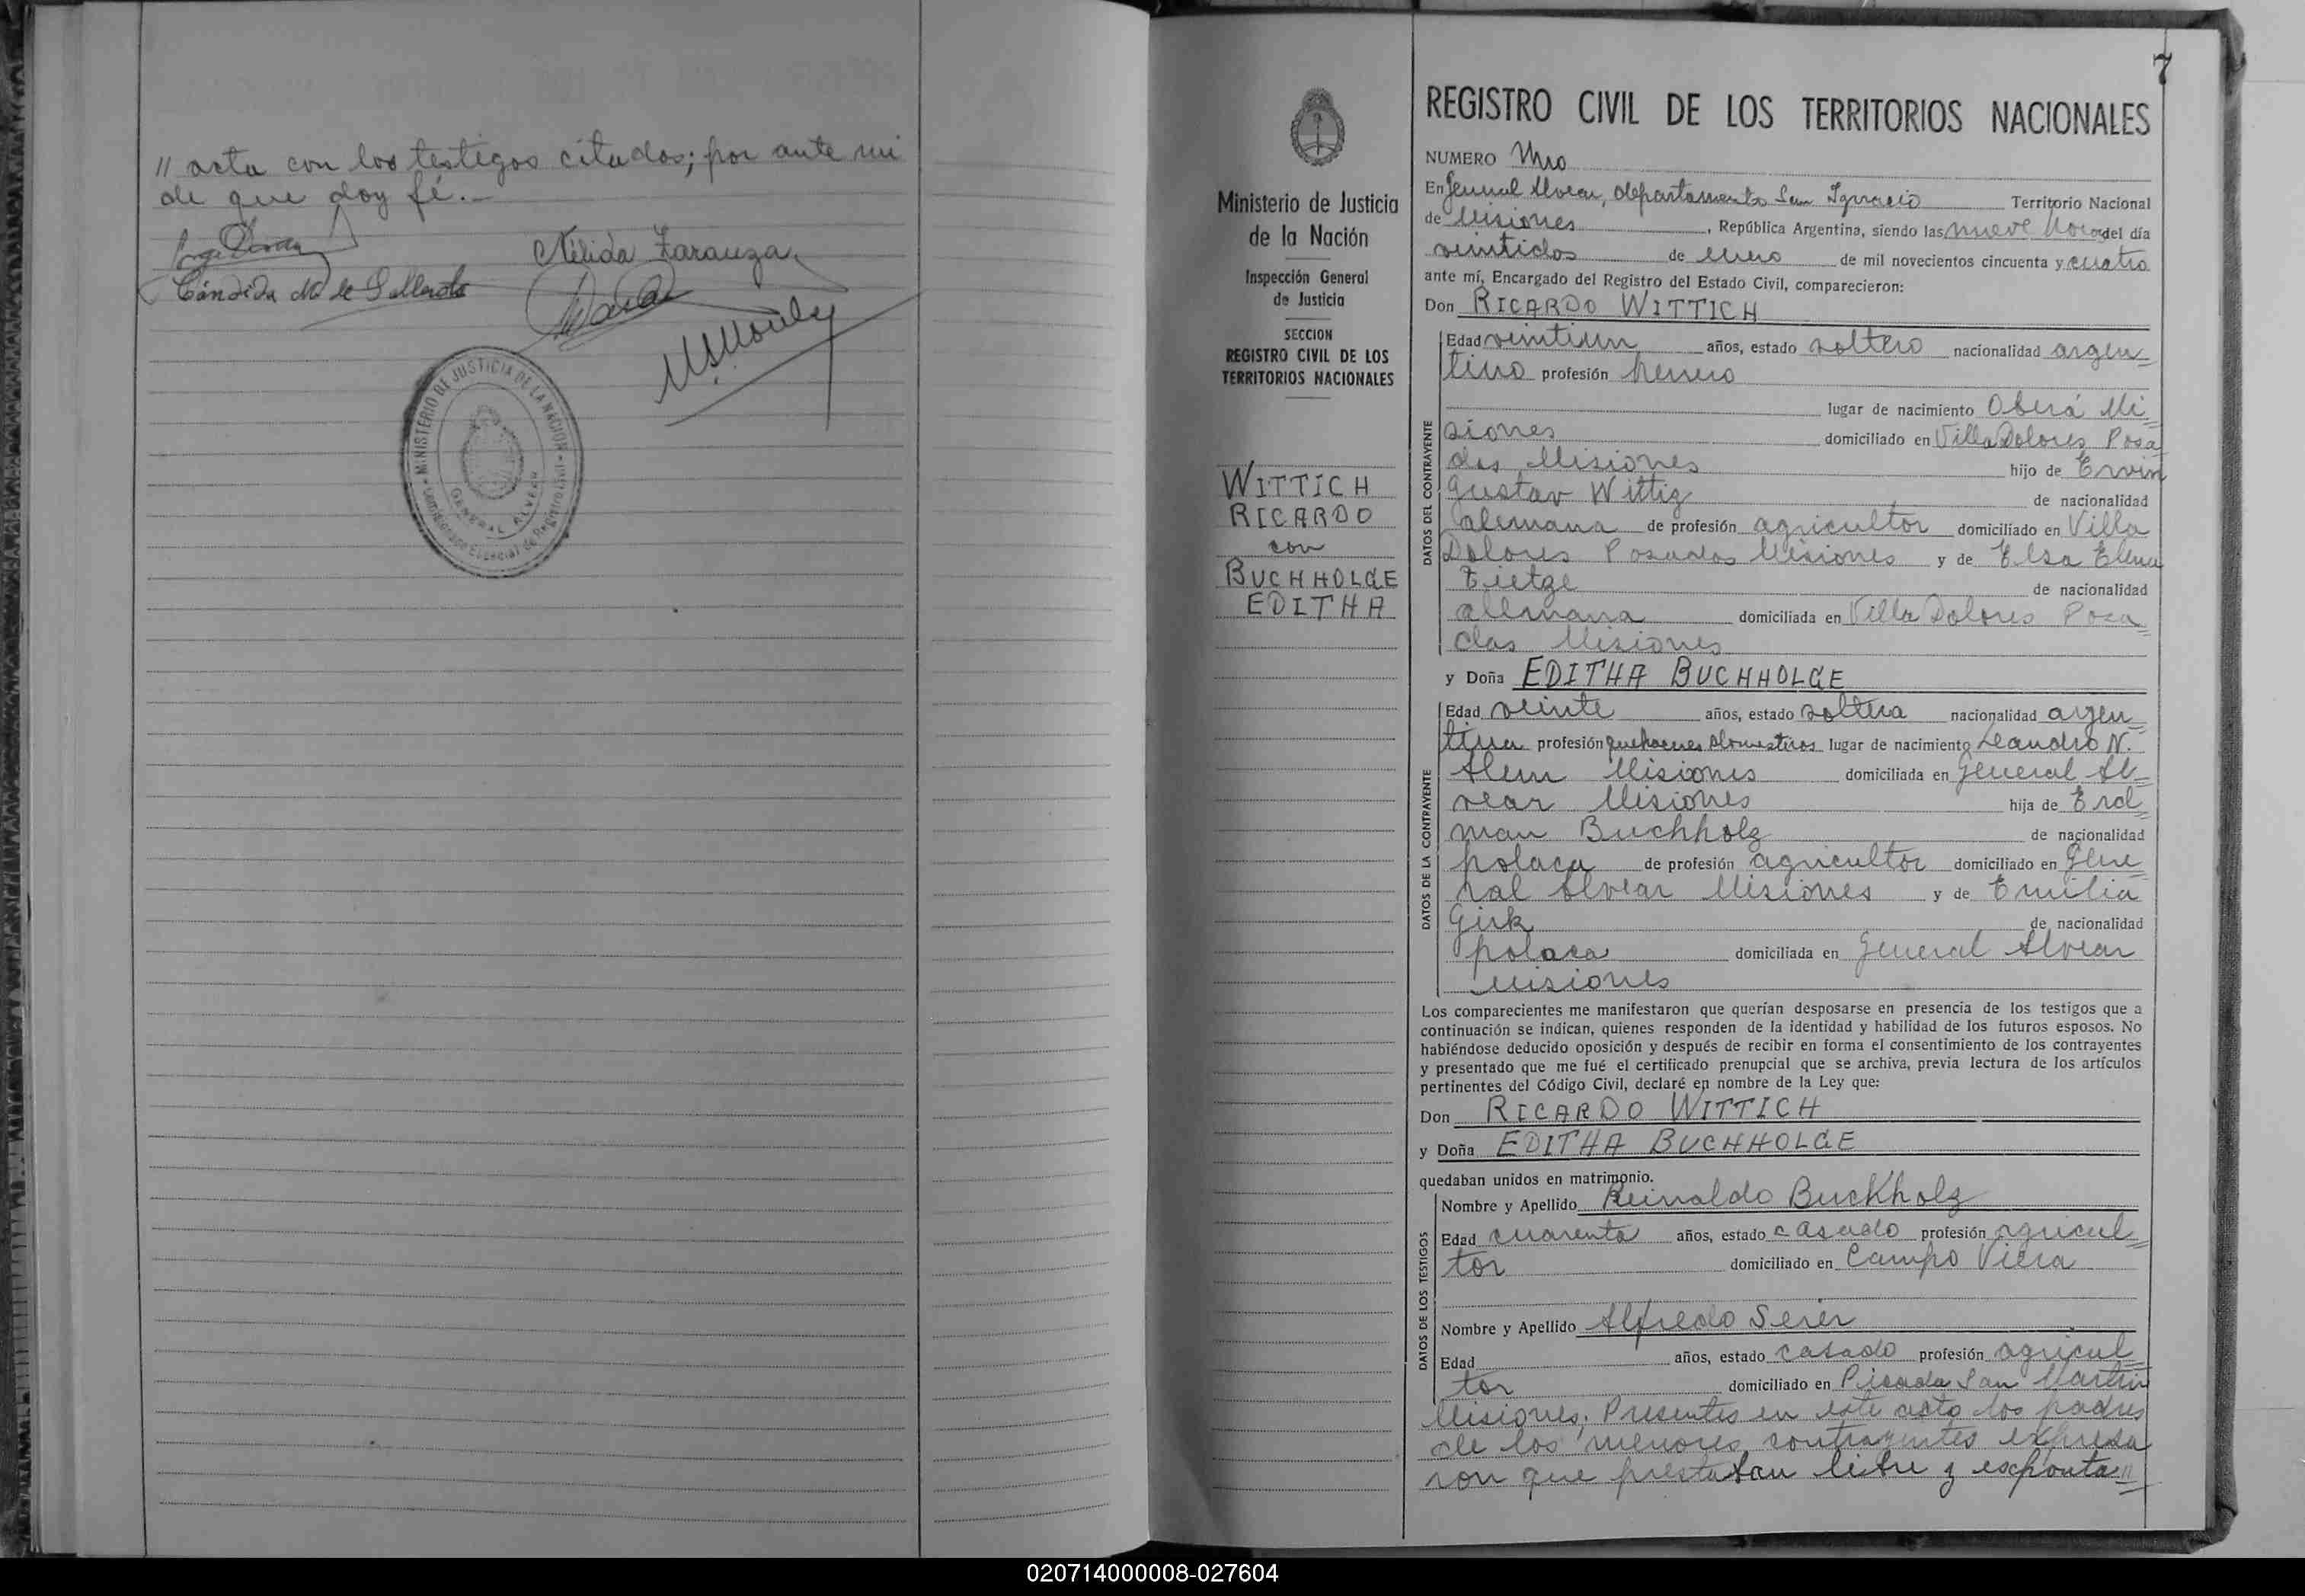 // acta con los testigos citados; por ante mi
de que doy fé.-
Nélida Zarauza
Cándida
MINISTERIO DE JUSTICIA DE LA NACION
GENERAL ALVEAR
7
Ministerio de Justicia
de la Nación
Inspección General
de Justicia
SECCION
REGISTRO CIVIL DE LOS
TERRITORIOS NACIONALES
WITTICH
RICARDO
con
BUCHHOLGE
EDITHA
REGISTRO CIVIL DE LOS TERRITORIOS NACIONALES
NUMERO Uno
En General Alvear, departamento San Ignacio Territorio Nacional
de Misiones, República Argentina, siendo las nueve horas del día
veintidos de Enero de mil novecientos cincuenta y cuatro
ante mí, Encargado del Registro del Estado Civil, comparecieron:
Don RICARDO WITTICH
DATOS DEL CONTRAYENTE
Edad veintiun años, estado soltero nacionalidad argen
tino profesión herrero
lugar de nacimiento Oberá Mi
siones domiciliado en Villa Dolores Posa
das Misiones hijo de Ervin
Gustav Wittig de nacionalidad
alemana de profesión agricultor domiciliado en Villa
Dolores Posadas Misiones y de Elsa Elena
Tietge de nacionalidad
alemana domiciliada en Villa Dolores Posa
das Misiones
y Doña EDITHA BUCHHOLGE
DATOS DE LA CONTRAYENTE
Edad veinte años, estado soltera nacionalidad argen
tina profesión quehaceres domesticos lugar de nacimiento Leandro N.
Alem Misiones domiciliada en General Al
vear Misiones hija de Erd
man Buchholg de nacionalidad
polaca de profesión agricultor domiciliado en Gene
ral Alvear Misiones y de Emilia
Girk de nacionalidad
polaca domiciliada en General Alvear
Misiones
Los comparecientes me manifestaron que querían desposarse en presencia de los testigos que a
continuación se indican, quienes responden de la identidad y habilidad de los futuros esposos. No
habiéndose deducido oposición y después de recibir en forma el consentimiento de los contrayentes
y presentado que me fué el certificado prenupcial que se archiva, previa lectura de los artículos
pertinentes del Código Civil, declaré en nombre de la Ley que:
Don RICARDO WITTICH
y Doña EDITHA BUCHHOLGE
quedaban unidos en matrimonio.
DATOS DE LOS TESTIGOS
Nombre y Apellido Reinaldo Buckholg
Edad cuarenta años, estado casado profesión agricul
tor domiciliado en Campo Viera
Nombre y Apellido Alfredo Seier
Edad años, estado casado profesión agricul
tor domiciliado en Picada San Martin
Misiones. Presentes en este acto los padres
de los menores contrayentes expresa
ron que prestaban libre y esponta//
020714000008-027604